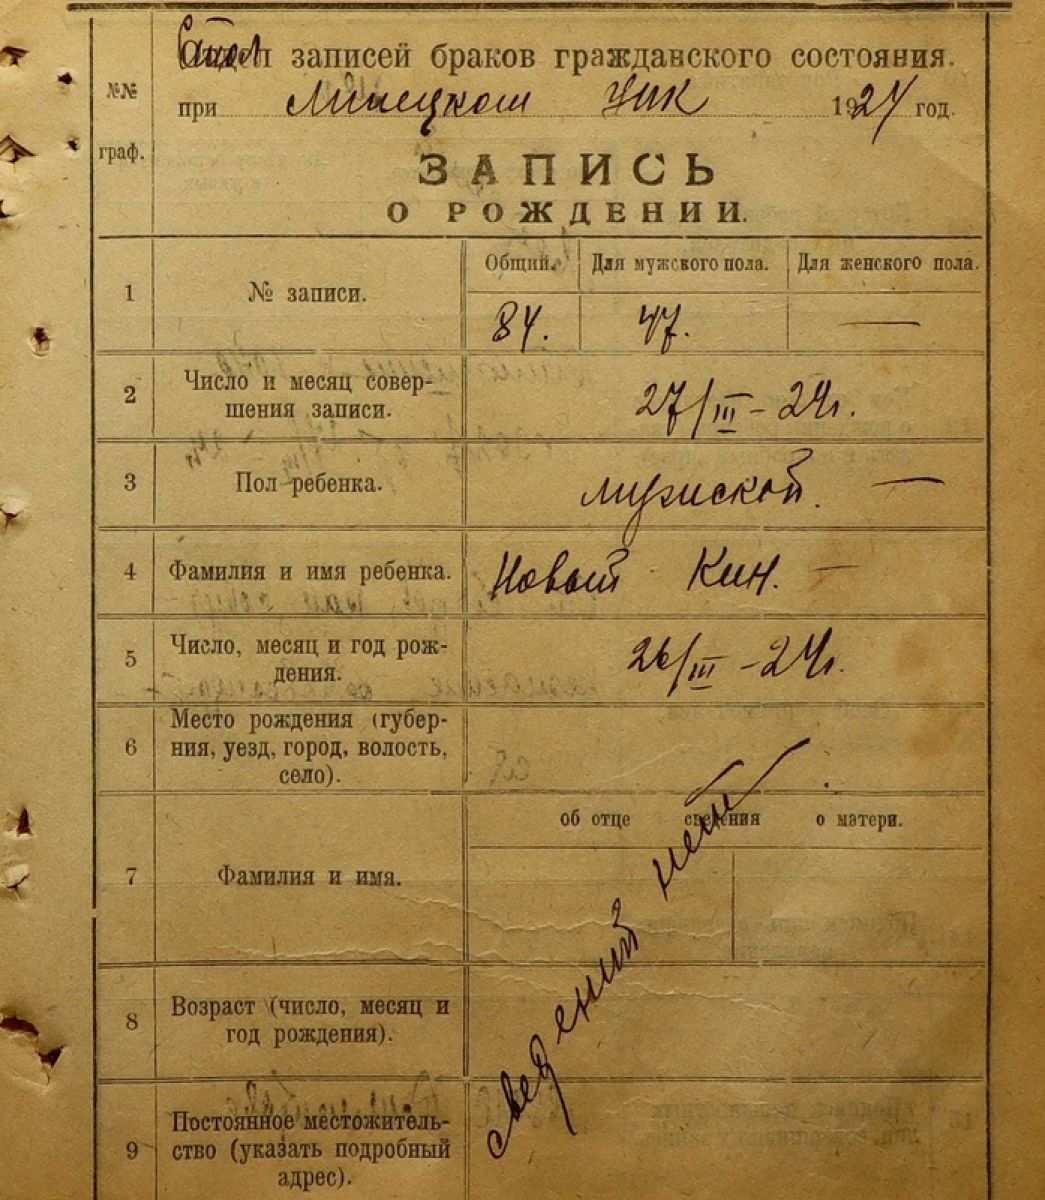 Стол записей браков гражданского состояния.
при Липецком УИК 1924 год.
№№
граф.
ЗАПИСЬ
О РОЖДЕНИИ.
1 № записи. Общий. Для мужского пола. Для женского пола.
84. 47. —
2 Число и месяц совер-
шения записи. 27/III – 24г.
3 Пол ребенка. мужской. —
4 Фамилия и имя ребенка. Новый Ким. —
5 Число, месяц и год рож-
дения. 26/III – 24г.
6 Место рождения (губер-
ния, уезд, город, волость,
село).
об отце сведения о матери.
7 Фамилия и имя.
сведений нет
8 Возраст (число, месяц и
год рождения).
9 Постоянное местожитель-
ство (указать подробный
адрес).